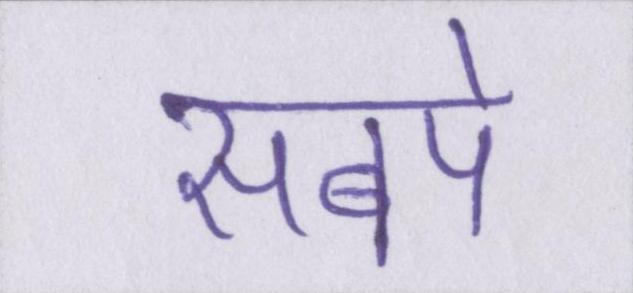 सबपे